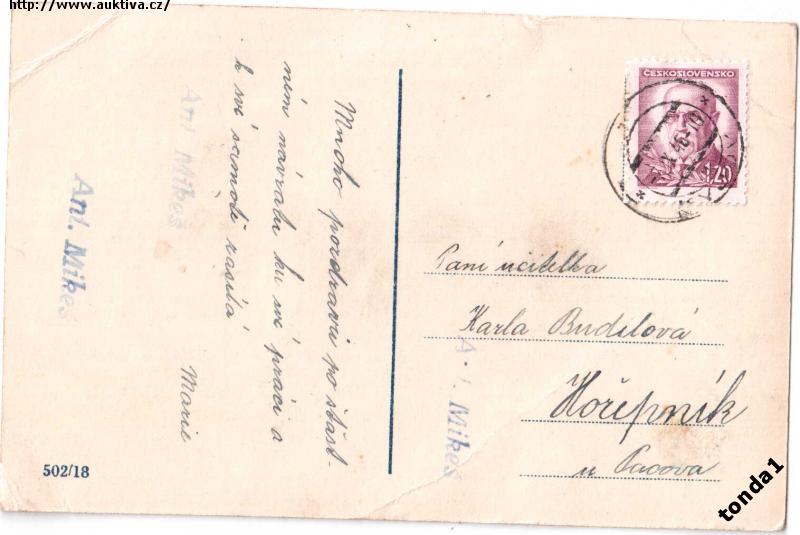 http://www.auktiva.cz/
Mnoho pozdravů po šťast-
ném návratu ku své práci a
k své samotě zasílá
Marie
Ant. Mikeš
Ant. Mikeš
502/18
ČESKOSLOVENSKO
1.20
Paní učitelka
Karla Budilová
Hořepník
u Pacova
A . Mikeš
tonda1